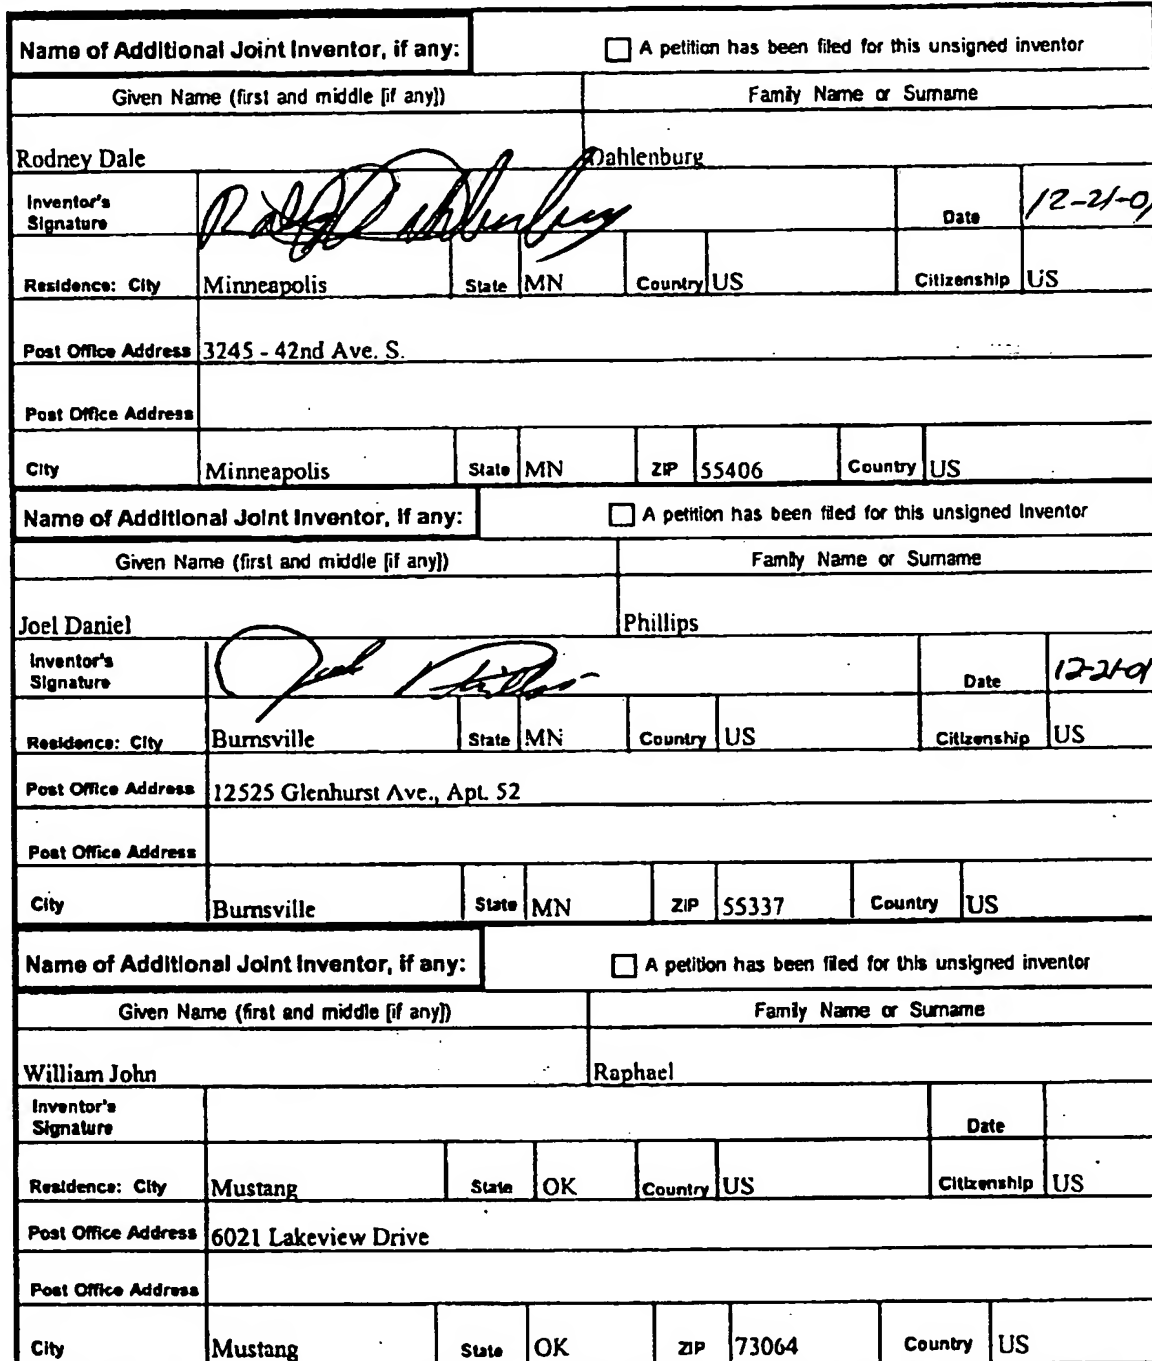 Name of Additional Joint Inventor, if any: A petition has been filed for this unsigned inventor
Given Name (first and middle [if any]) Family Name or Surname
Rodney Dale Dahlenburg
Inventor's Signature Date 12-21-01
Residence: City Minneapolis State MN Country US Citizenship US
Post Office Address 3245 - 42nd Ave. S.
Post Office Address
City Minneapolis State MN ZIP 55406 Country US
Name of Additional Joint Inventor, if any: A petition has been filed for this unsigned inventor
Given Name (first and middle [if any]) Family Name or Surname
Joel Daniel Phillips
Inventor's Signature Joel Phillips Date 12-21-01
Residence: City Burnsville State MN Country US Citizenship US
Post Office Address 12525 Glenhurst Ave., Apt. 52
Post Office Address
City Burnsville State MN ZIP 55337 Country US
Name of Additional Joint Inventor, if any: A petition has been filed for this unsigned inventor
Given Name (first and middle [if any]) Family Name or Surname
William John Raphael
Inventor's Signature Date
Residence: City Mustang State OK Country US Citizenship US
Post Office Address 6021 Lakeview Drive
Post Office Address
City Mustang State OK ZIP 73064 Country US